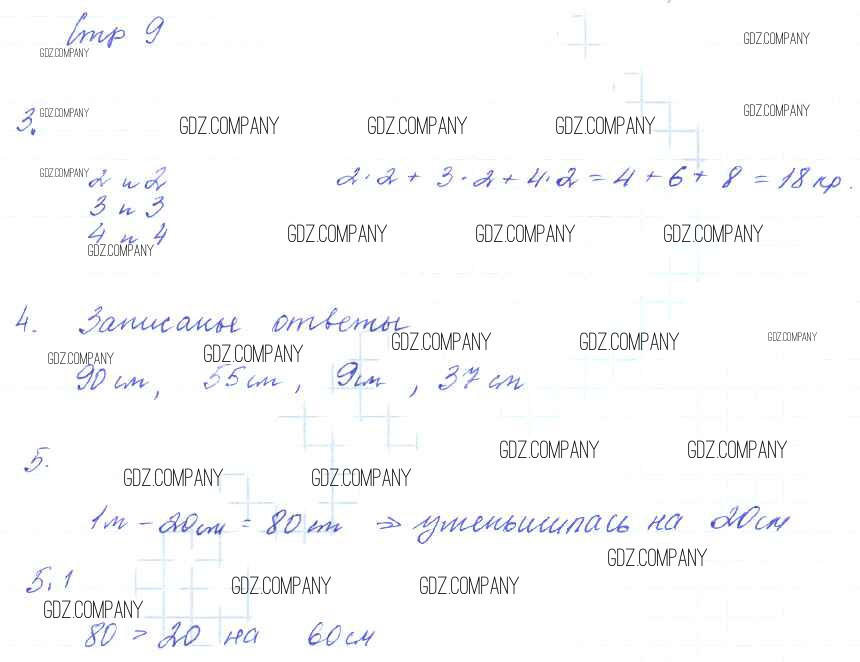 Стр 9
GDZ.COMPANY GDZ.COMPANY
3. GDZ.COMPANY GDZ.COMPANY GDZ.COMPANY GDZ.COMPANY GDZ.COMPANY
GDZ.COMPANY 2 и 2 2·2 + 3·2 + 4·2 = 4 + 6 + 8 = 18 кр.
3 и 3
4 и 4 GDZ.COMPANY GDZ.COMPANY GDZ.COMPANY
GDZ.COMPANY
4. Записаные ответы
GDZ.COMPANY GDZ.COMPANY GDZ.COMPANY GDZ.COMPANY GDZ.COMPANY
90 см, 55 см, 9 см, 37 см
5. GDZ.COMPANY GDZ.COMPANY
GDZ.COMPANY GDZ.COMPANY
1м - 20 см = 80 см => уменьшилась на 20 см
GDZ.COMPANY
5.1 GDZ.COMPANY GDZ.COMPANY
GDZ.COMPANY
80 > 20 на 60 см